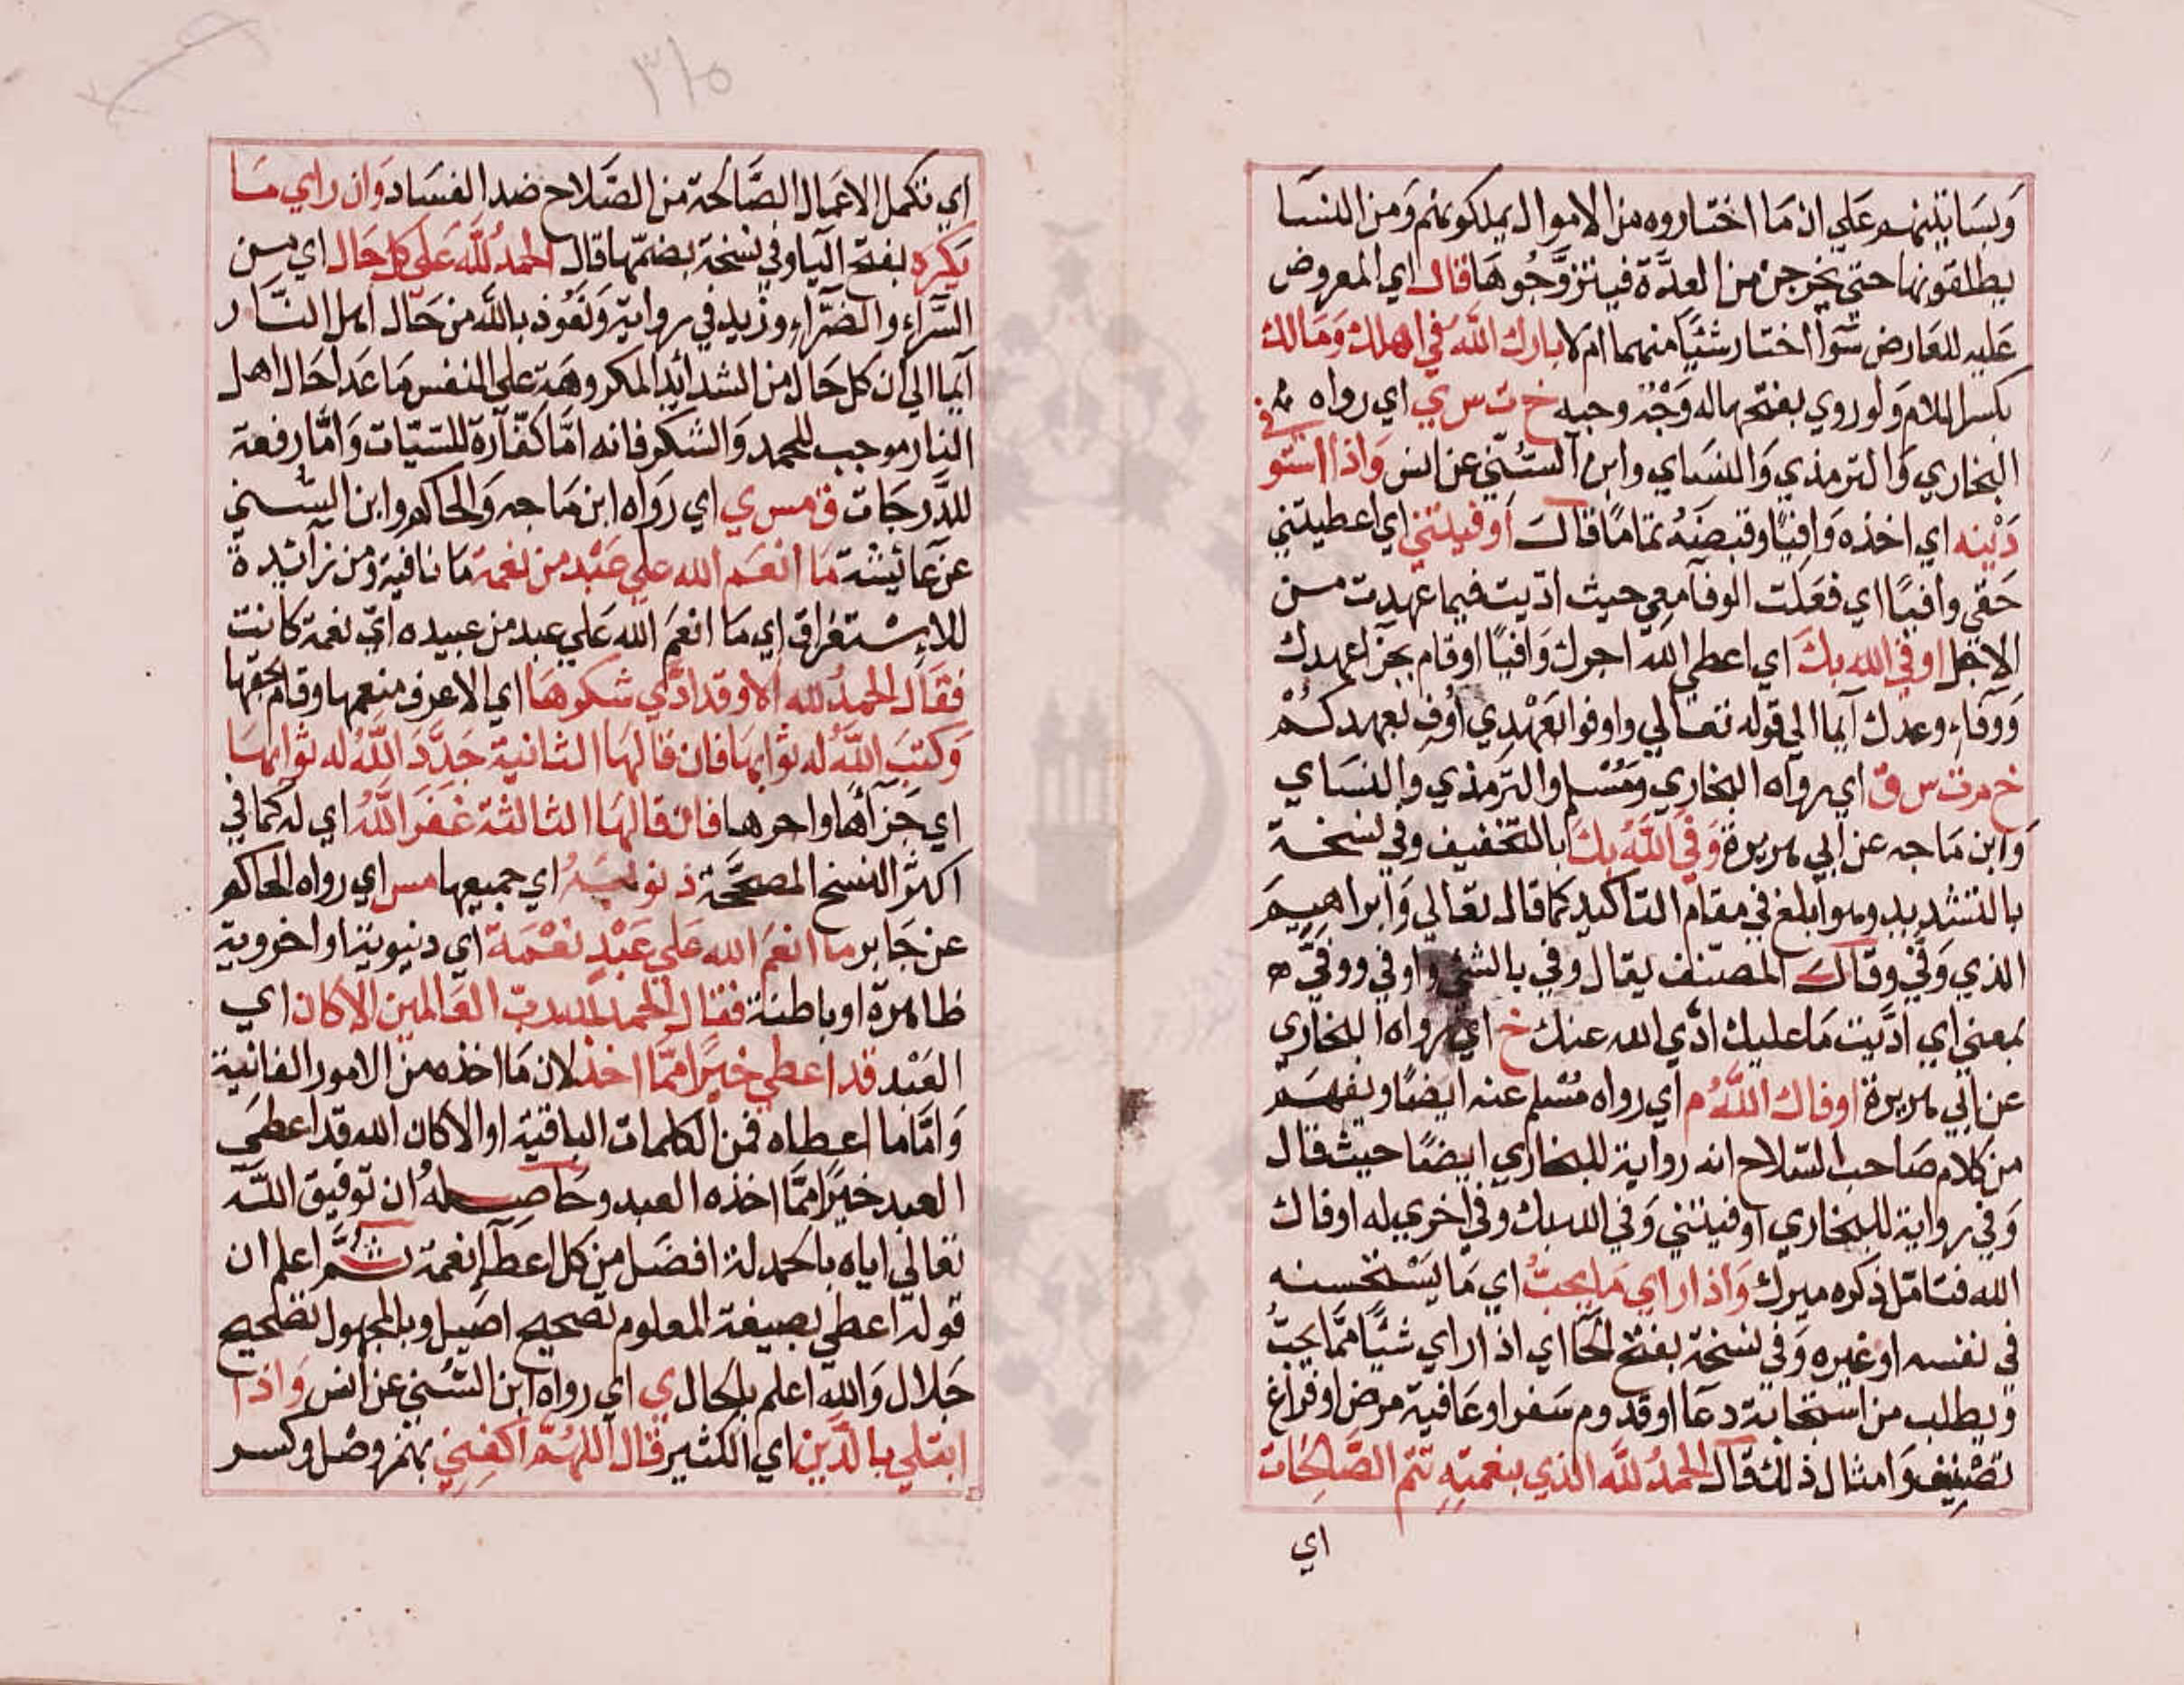 وبساتينهم علي ان ما اختاروه من الاموال يملكونهم ومن النسا
يطلقونها حتي يخرجن من العدّة فيتزوّجوها قال اي المعروض
عليه للعارض سوآ اختار شئيا منهما ام لا بارك الله في اهلك ومالك
بكسر اللام ولو روي بفتحها له وجه وجيه خ ت س ي اي رواه
البخاري والترمذي والنساي وابن السني عن انس واذا استوفي
دينه اي اخذه وافيًا وقبضه تمامًا قال اوفيتني اي اعطيتني
حقي وافيًا اي فعلت الوفآ معي حيث اديت فيما عهدت من
الاجل اوفي الله بك اي اعطي الله اجرك وافيًا او قام بجزآ عهدك
ووفاء وعدك ايمآ الي قوله تعالي واوفوا بعهدي اوف بعهدكم
خ م ت س ق اي رواه البخاري ومسلم والترمذي والنساي
وابن ماجه عن ابي هريرة وفي الله بك بالتخفيف وفي نسخة
بالتشديد وهو ابلغ في مقام التاكيد كما قال تعالي وابراهيم
الذي وفّي وقال المصنف يقال وفي بالشئ واوفي ووفّي
بمعني اي ادّيت ما عليك ادّي الله عنك خ اي رواه البخاري
عن ابي هريرة اوفاك الله م اي رواه مسلم عنه ايضًا ويفهم
من كلام صاحب السلاح انه رواية للبخاري ايضًا حيث قال
وفي رواية للبخاري اوفيتني وفي الله بك وفي اخري له اوفاك
الله فتامّل ذكره ميرك واذا راي ما يحبّ اي ما يستحسنه
في نفسه او غيره وفي نسخة بفتح الحآ اي اذا راي شئيًا ممّا يحبّ
ويطلب من استجابة دعآ او قدوم سفر او عافية مرض او فراغ
تصنيف وامثال ذلك قال الحمد لله الذي بنعمته تتم الصّالحات
اي
٣١٥
اي تكمل الاعمال الصّالحة من الصّلاح ضد الفساد وان راي ما
يكره بفتح اليا وفي نسخة بضمّها قال الحمد لله علي كل حال اي من
السّراء والضّراء وزيد في رواية ونعوذ بالله من حال اهل النّار
ايمآ الي ان كل حال من الشدائد المكروهة علي النفس ما عدا حال اهل
النار موجب للحمد والشكر فانه امّا كفّارة للسيّات وامّا رفعة
للدّرجات ق مس ي اي رواه ابن ماجه والحاكم وابن السّني
عن عائيشة ما انعم الله علي عبد من نعمة ما نافية ومن زائدة
للاستغراق اي ما انعم الله علي عبد من عبيده ايّ نعمة كانت
فقال الحمد لله الا وقد ادّي شكرها اي الا عرف منعمها وقام بحقها
وكتب الله له ثوابها فان قالها الثانية جدّد الله له ثوابها
اي جزآها واجرها فان قالها الثالثة غفر الله اي له كما في
اكثر النسخ المصحّحة ذنوبه اي جميعها مس اي رواه الحاكم
عن جابر ما انعم الله علي عبد نعمة اي دنيوية او اخروية
ظاهرة او باطنة فقال الحمد لله ربّ العالمين الا كان اي
العبد قد اعطي خيرًا ممّا اخذ لان ما اخذه من الامور الفانية
وامّا ما اعطاه فمن الكلمات الباقية او الا كان الله قد اعطي
العبد خيرًا ممّا اخذه العبد وحاصله ان توفيق الله
تعالي اياه بالحمدلة افضل من كل اعطآء نعمة ثمّ اعلم ان
قوله اعطي بصيغة المعلوم تصحيح اصيل وبالمجهول تصحيح
جلال والله اعلم بالحال ي اي رواه ابن السّني عن انس واذا
ابتلي بالدّين اي الكثير قال اللهمّ اكفني بهمز وصل وكسر